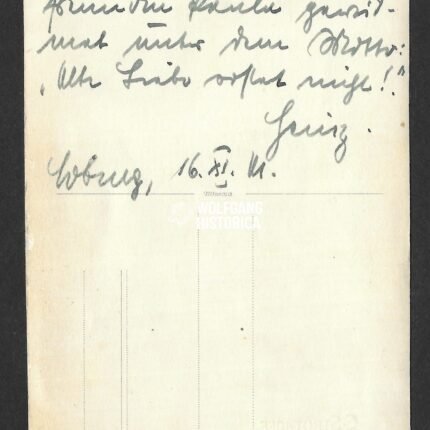 Freundin Paula gewid-
met unter dem Motto:
„Alte Liebe rostet nicht!"
Heinz.
Coburg, 16. XI. 41.
WOLFGANG
HISTORICA